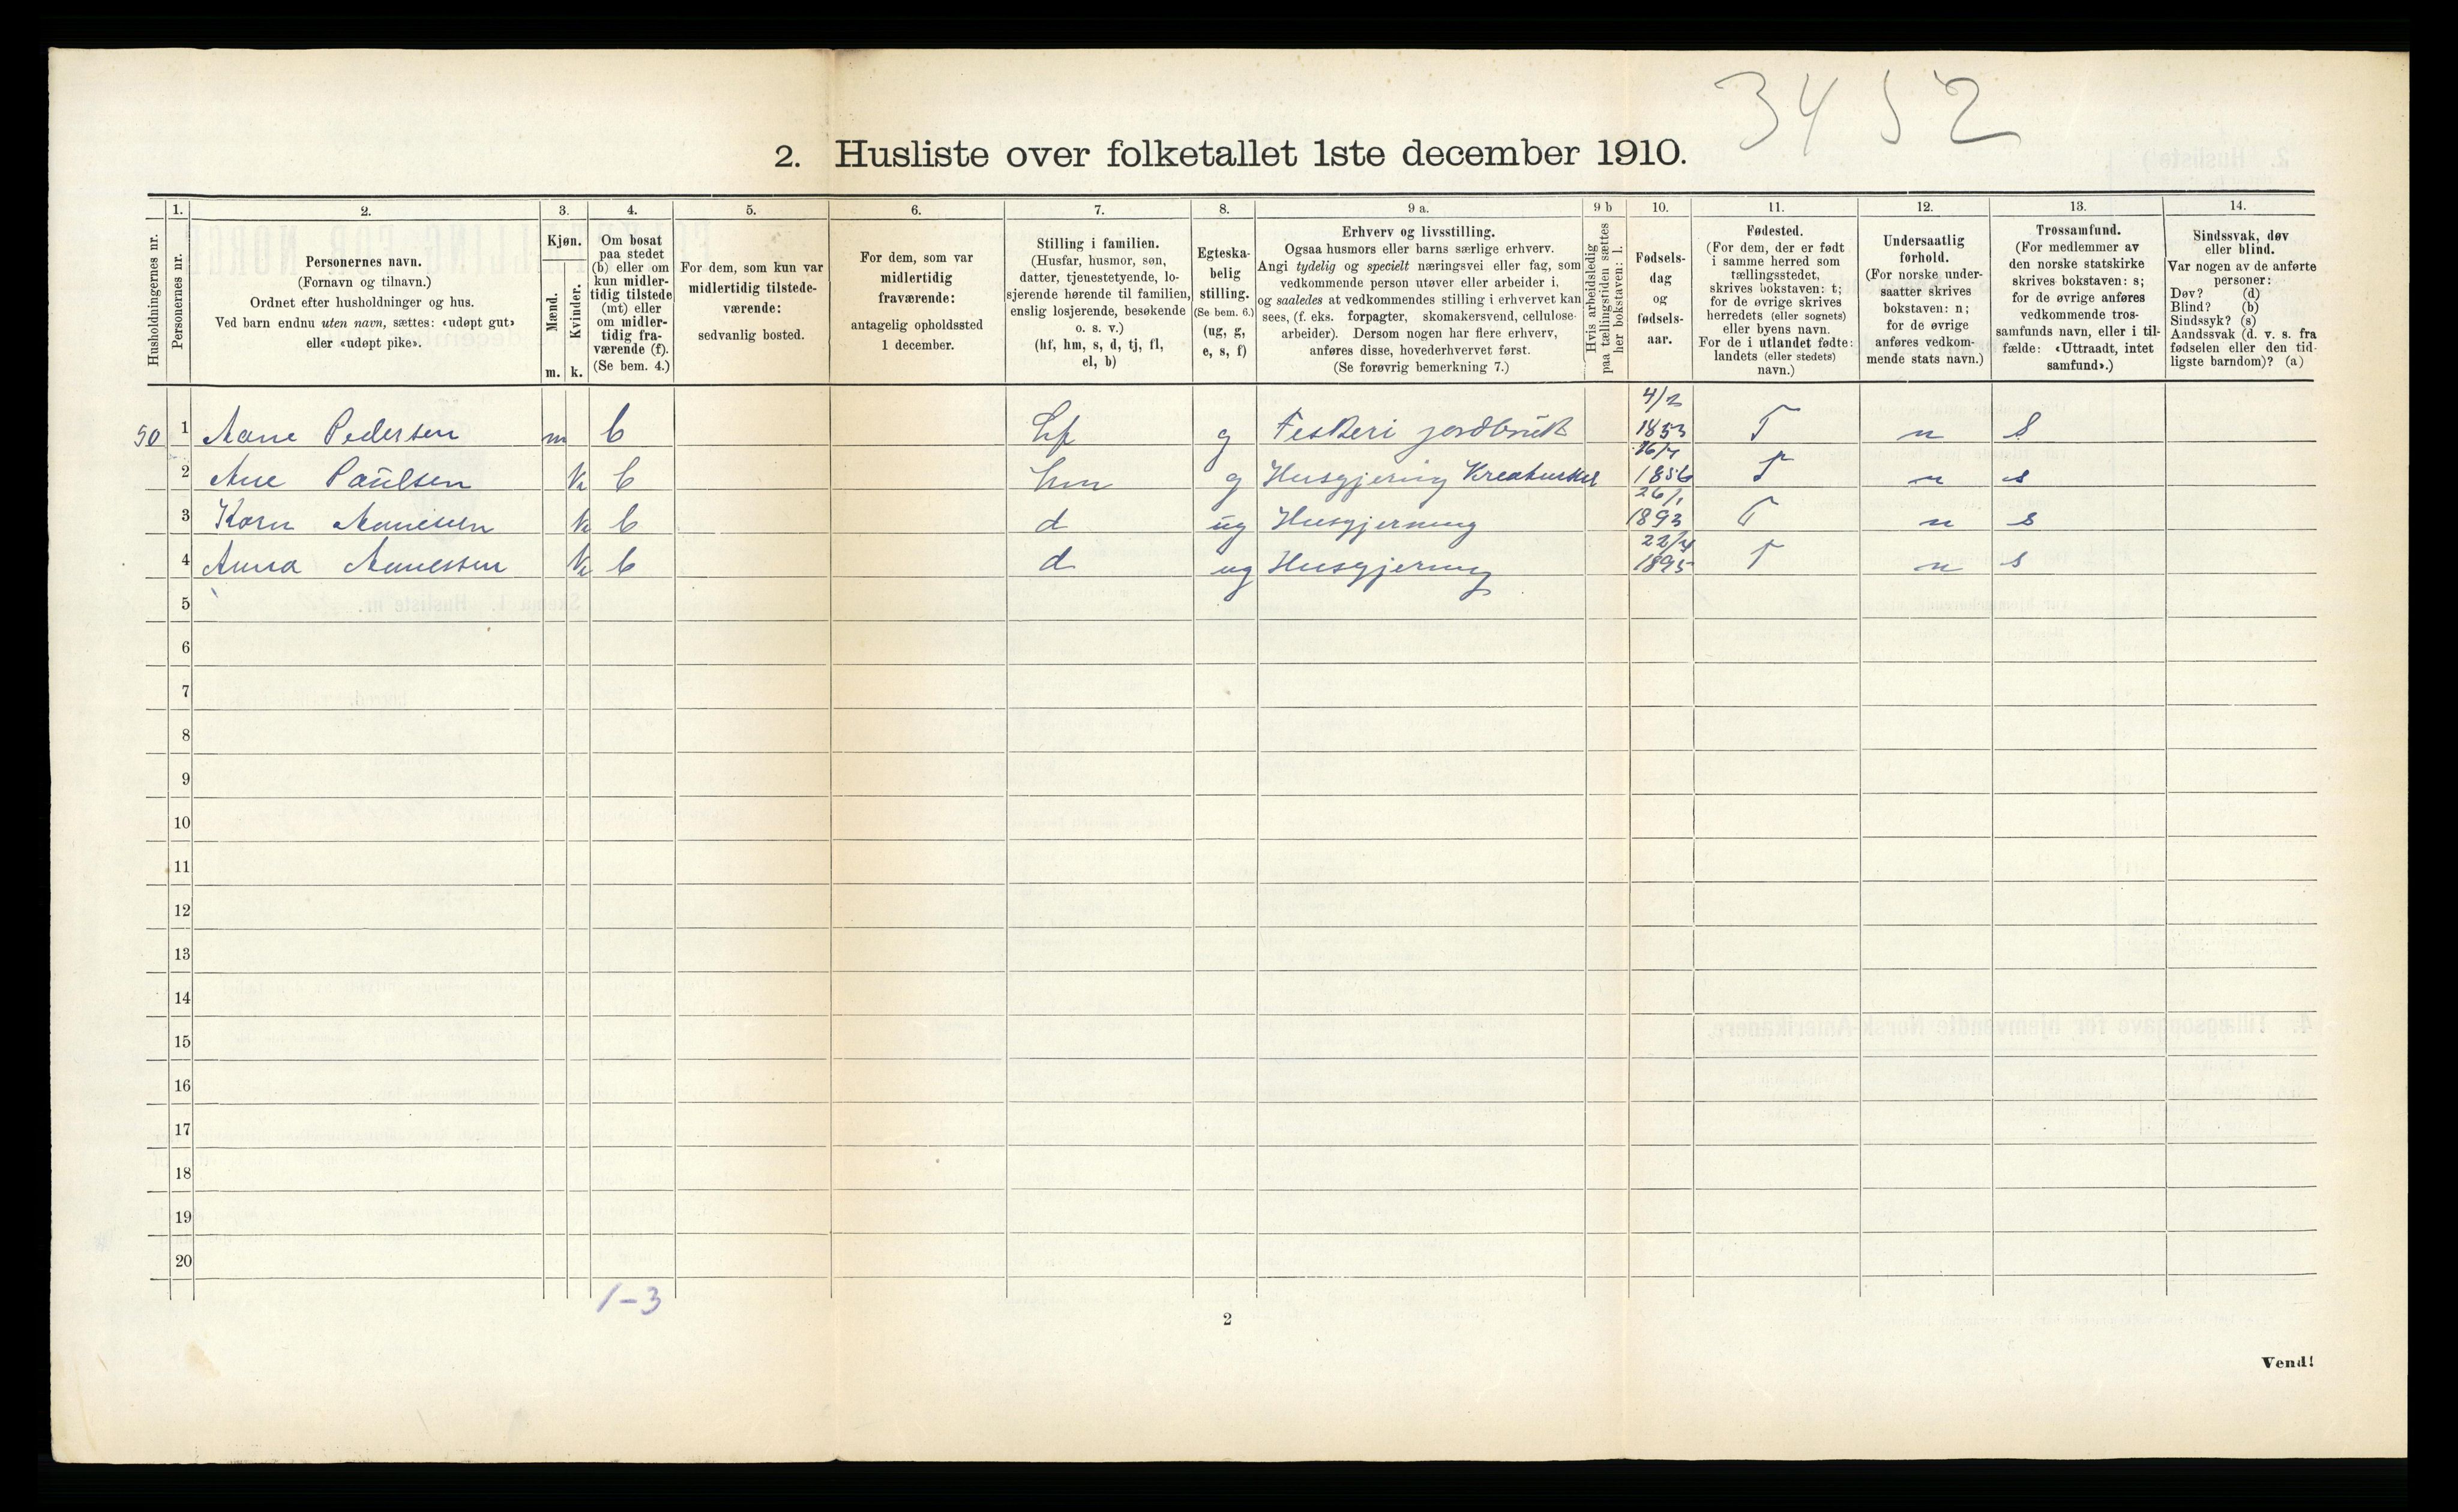 3452
2. Husliste over folketallet 1ste december 1910.
Husholdningernes nr.
1.
Personernes nr.
2.
Personernes navn.
(Fornavn og tilnavn.)
Ordnet efter husholdninger og hus.
Ved barn endnu uten navn, sættes: «udøpt gut»
eller «udøpt pike».
3.
Kjøn.
Mænd.
Kvinder.
m. k.
4.
Om bosat
paa stedet
(b) eller om
kun midler-
tidig tilstede
(mt) eller
om midler-
tidig fra-
værende (f).
(Se bem. 4.)
5.
For dem, som kun var
midlertidig tilstede-
værende:
sedvanlig bosted.
6.
For dem, som var
midlertidig
fraværende:
antagelig opholdssted
1 december.
7.
Stilling i familien.
(Husfar, husmor, søn,
datter, tjenestetyende, lo-
sjerende hørende til familien,
enslig losjerende, besøkende
o. s. v.)
(hf, hm, s, d, tj, fl,
el, b)
8.
Egteska-
belig
stilling.
(Se bem. 6.)
(ug, g,
e, s, f)
9 a.
Erhverv og livsstilling.
Ogsaa husmors eller barns særlige erhverv.
Angi tydelig og specielt næringsvei eller fag, som
vedkommende person utøver eller arbeider i,
og saaledes at vedkommendes stilling i erhvervet kan
sees, (f. eks. forpagter, skomakersvend, cellulose-
arbeider). Dersom nogen har flere erhverv,
anføres disse, hovederhvervet først.
(Se forøvrig bemerkning 7.)
9 b
Hvis arbeidsledig
paa tællingstiden sættes
her bokstaven: l.
10.
Fødsels-
dag
og
fødsels-
aar.
11.
Fødested.
(For dem, der er født
i samme herred som
tællingsstedet,
skrives bokstaven: t;
for de øvrige skrives
herredets (eller sognets)
eller byens navn.
For de i utlandet fødte:
landets (eller stedets)
navn.)
12.
Undersaatlig
forhold.
(For norske under-
saatter skrives
bokstaven: n;
for de øvrige
anføres vedkom-
mende stats navn.)
13.
Trossamfund.
(For medlemmer av
den norske statskirke
skrives bokstaven: s;
for de øvrige anføres
vedkommende tros-
samfunds navn, eller i til-
fælde: «Uttraadt, intet
samfund».)
14.
Sindssvak, døv
eller blind.
Var nogen av de anførte
personer:
Døv? (d)
Blind? (b)
Sindssyk? (s)
Aandssvak (d. v. s. fra
fødselen eller den tid-
ligste barndom)? (a)
50 1 Aane Pedersen m b hf g Feskeri jordbruk 4/2 1853 T n S
2 Ane Paulsen k b hm g Husgjering 1856 T n s
3 Karn k b d ug Husgjerning 26/1 1893 T n s
4 Anna Aanessen k b d ug Husgjerning 22/4 1895 T n s
5
6
7
8
9
10
11
12
13
14
15
16
17
18
19
20
1-3
2
Vend!